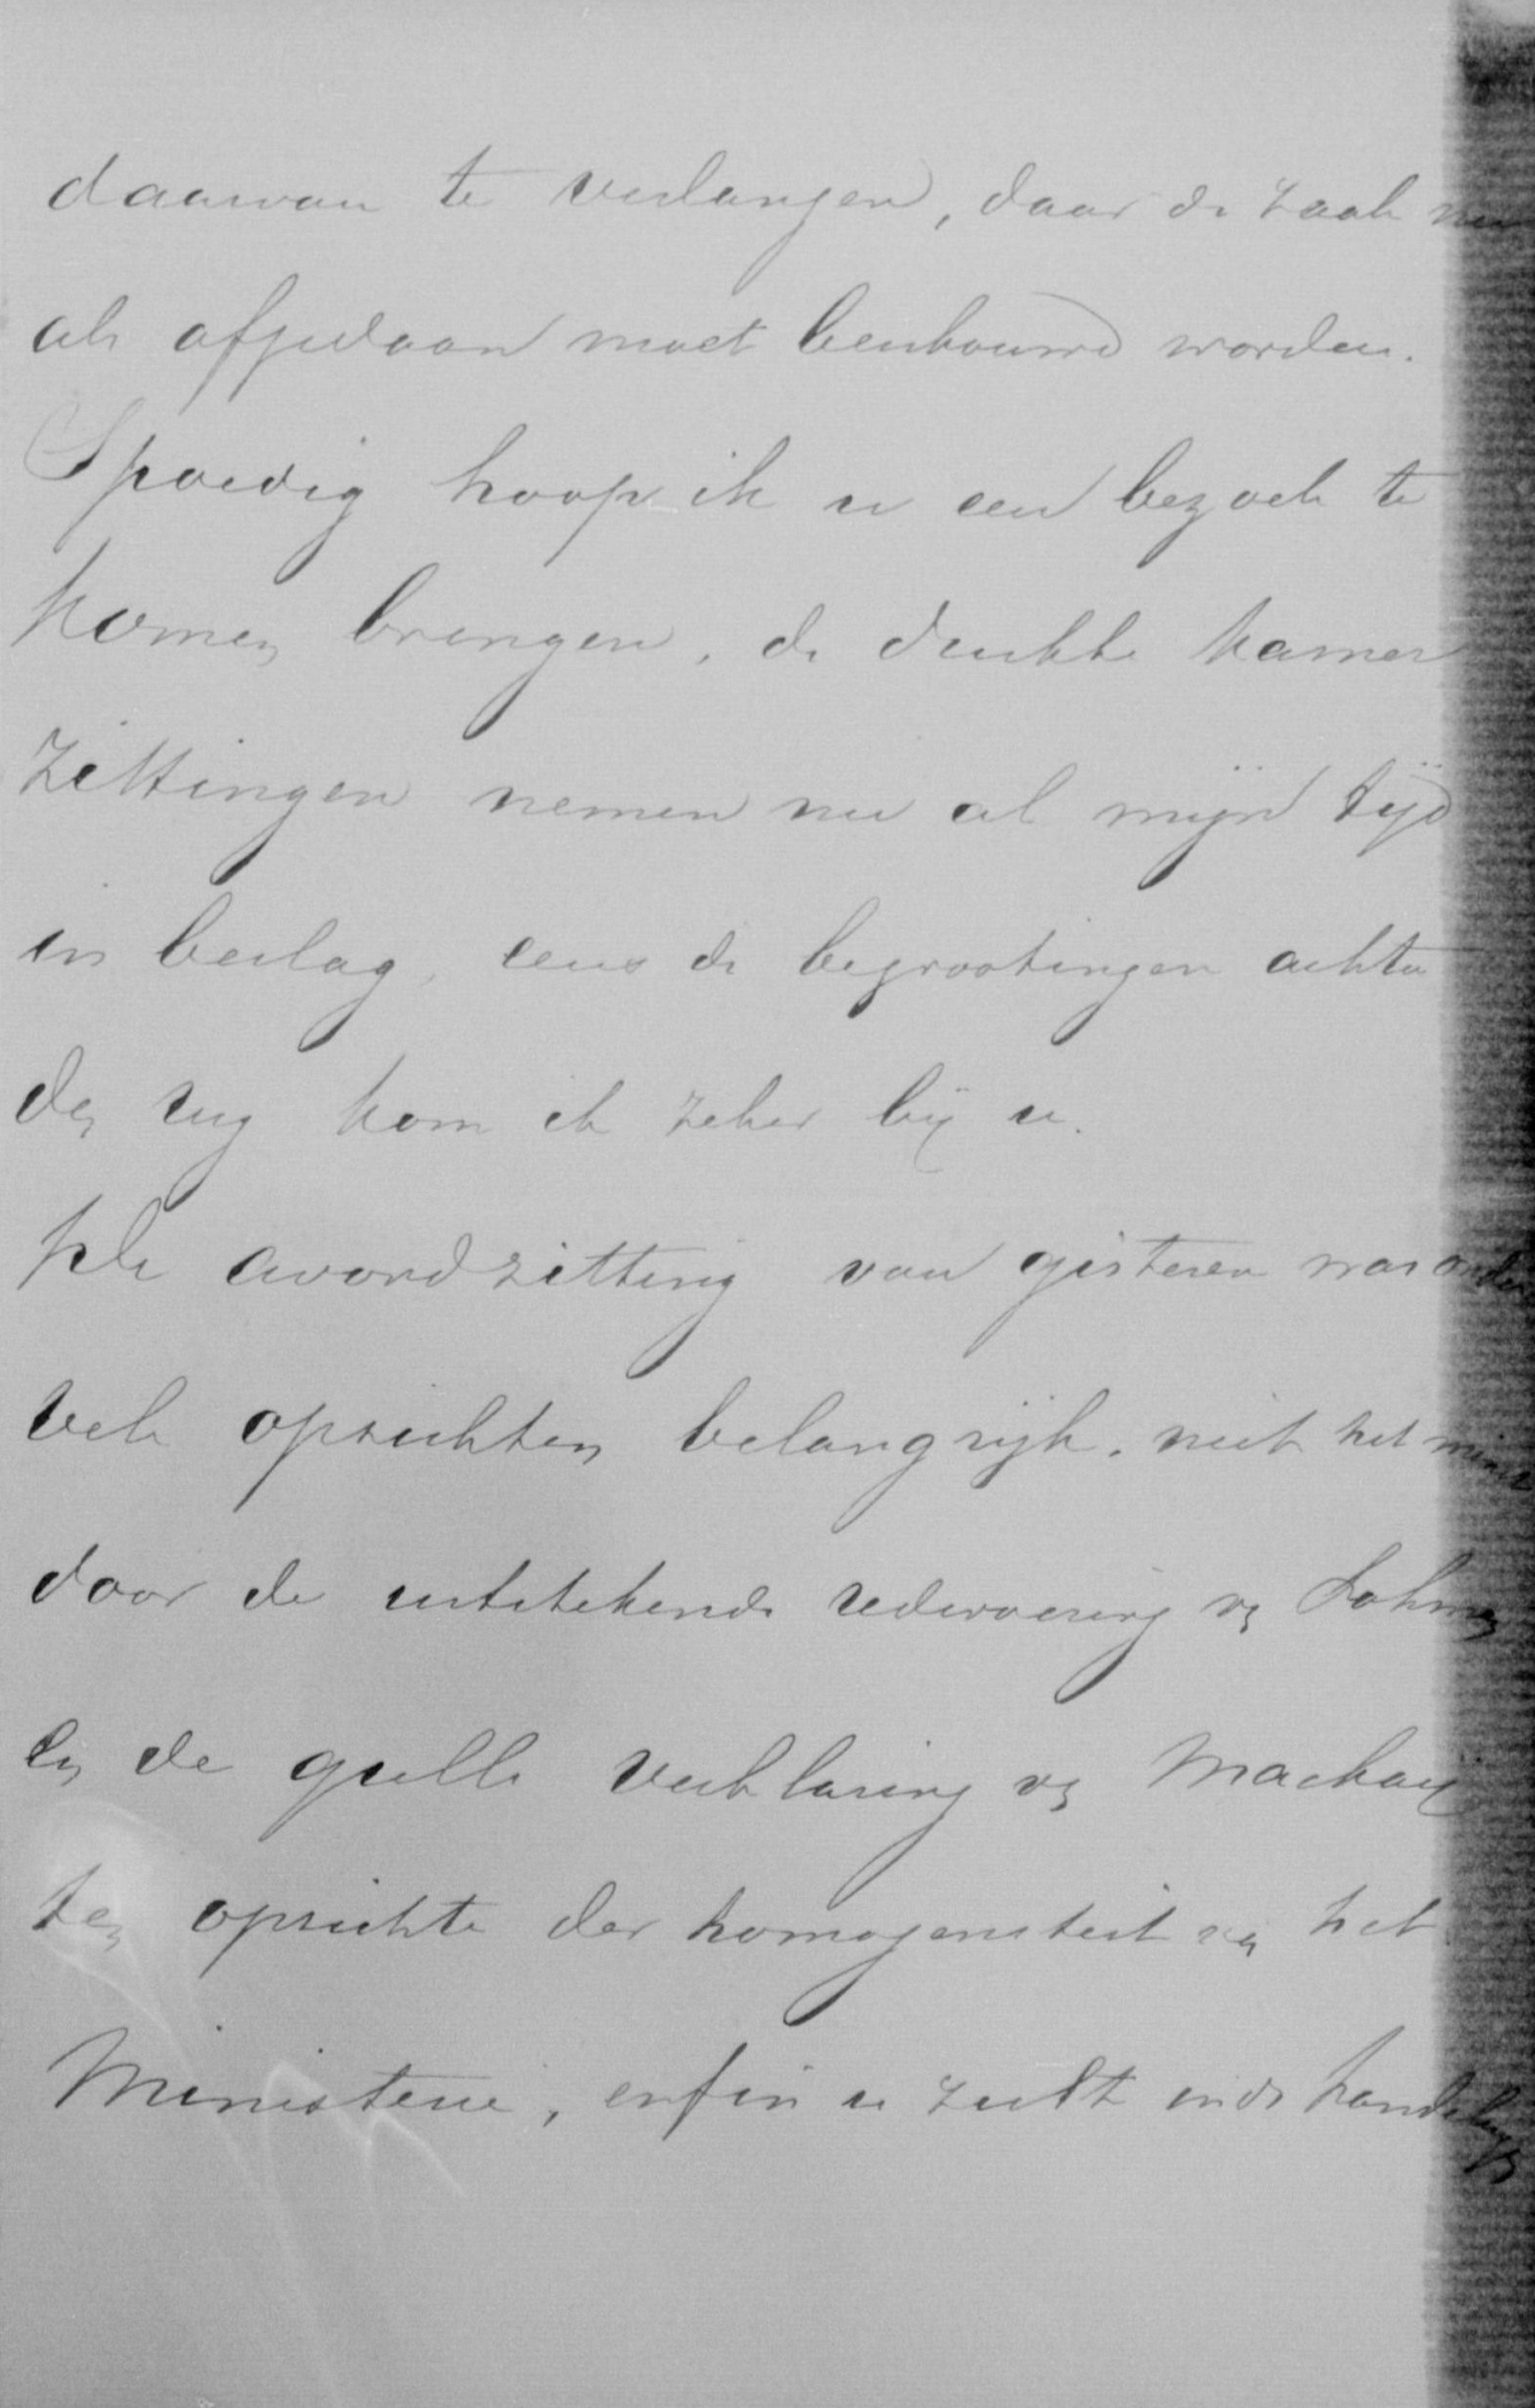 daarvan te verlangen, daar de zaak nu
als afgedaan moet beschouwd worden.
Spoedig hoop ik u een bezoek te
komen brengen, de drukke Kamer
zittingen nemen nu al mijn tijd
in beslag, eens de begrootingen achter
den rug kom ik zeker bij u.
De avondzitting van gisteren was onder
vele opzichten belangrijk, niet het minst
door de uitstekende redevoering van Lohman
en de gulle verklaring van Mackay
ten opzichte der homogeniteit van het
Ministerie, enfin u zult in de handelingen